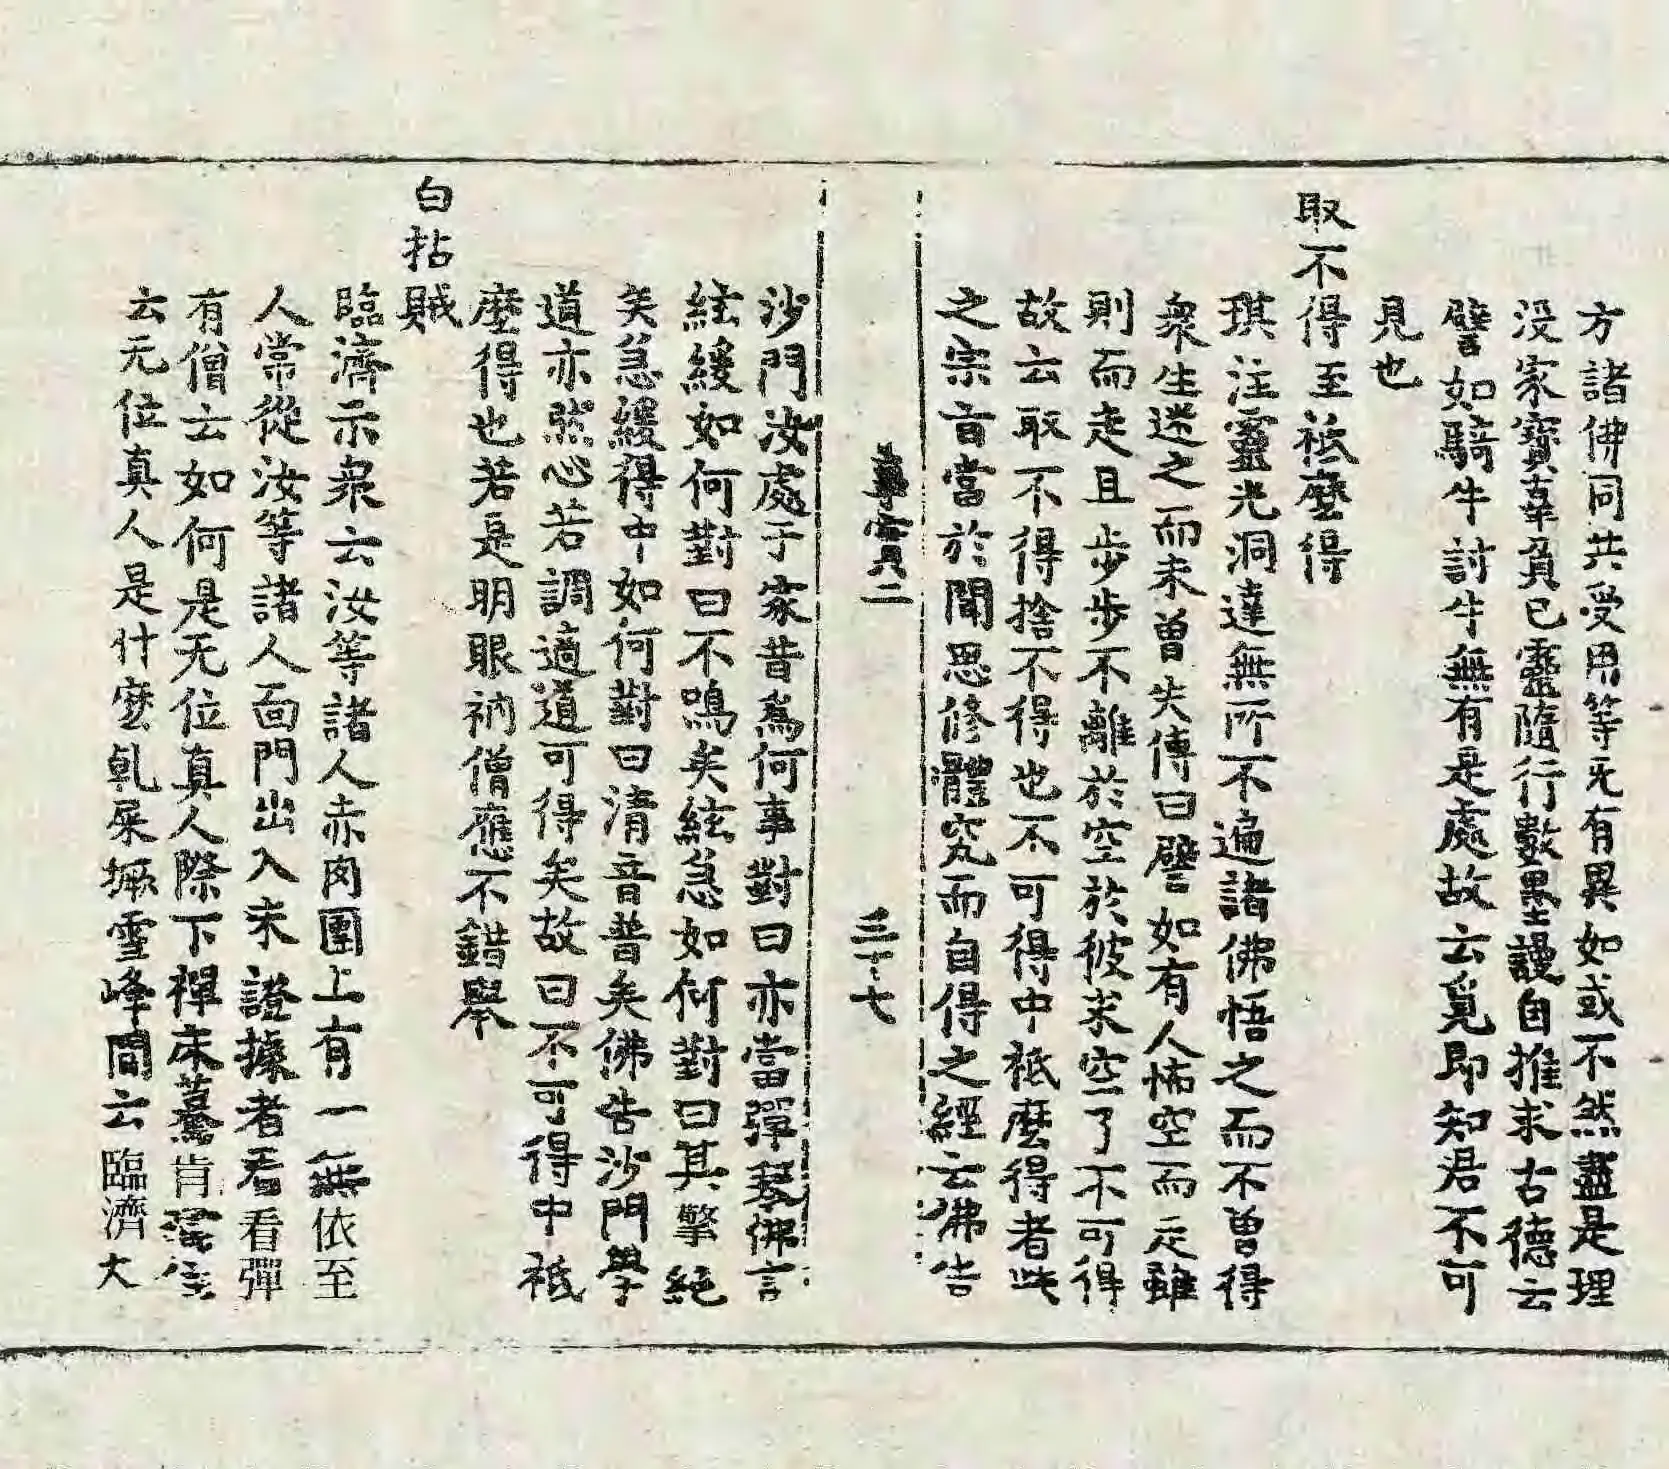 方諸佛同共受用等无有異如或不然盡是理
没家寶辜負已靈隨行數墨謾自推求古德云
譬如騎牛討牛無有是處故云覓即知君不可
見也
取不得至祇麼得
琪注靈光洞達無所不遍諸佛悟之而不曾得
衆生迷之而未曾失傳曰譬如有人怖空而走雖
則而走且步步不離於空於彼求空了不可得
故云取不得捨不得也不可得中祇麼得者此
之宗旨當於聞思修體究而自得之經云佛告
事實二
三十七
沙門汝處于家昔爲何事對曰亦當彈琴佛言
絃緩如何對曰不鳴矣絃急如何對曰其擎絕
矣急緩得中如何對曰清音普矣佛告沙門學
道亦然心若調適道可得矣故曰不可得中祇
麼得也若是明眼衲僧應不錯舉
白拈賊
臨濟示衆云汝等諸人赤肉團上有一無依至
人常從汝等諸人面門出入未證據者看看彈
有僧云如何是无位真人際下禪床驀肯
云无位真人是什麼乹屎撅雪峰聞云臨濟大